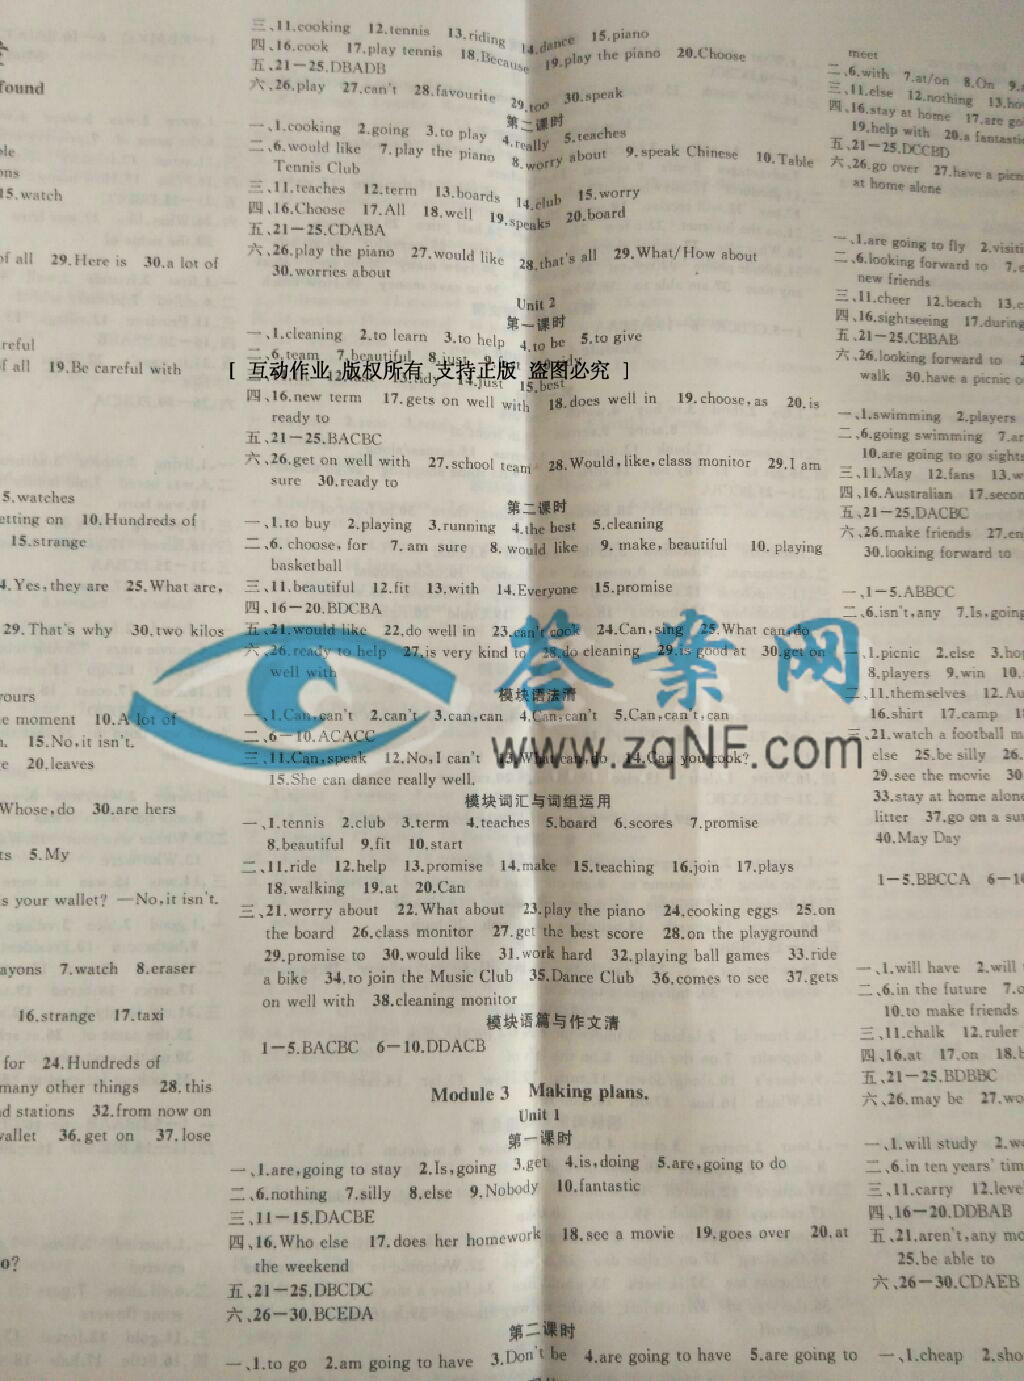 found
15.watch
of all 29.Here is 30.a lot of
f all 19.Be careful with
5.watches
etting on 10.Hundreds of
15.strange
4.Yes,they are 25.What are,
29.That's why 30.two kilos
yours
e moment 10.A lot of
15.No,it isn't.
20.leaves
Whose,do 30.are hers
5.My
s your wallet? —No,it isn't.
ayons 7.watch 8.eraser
16.strange 17.taxi
for 24.Hundreds of
many other things 28.this
d stations 32.from now on
wallet 36.get on 37.lose
o?
三、11.cooking 12.tennis 13.riding 14.dance 15.piano
四、16.cook 17.play tennis 18.Because 19.play the piano 20.Choose
五、21-25.DBADB
六、26.play 27.can't 28.favourite 29.too 30.speak
第二课时
一、1.cooking 2.going 3.to play 4.really 5.teaches
二、6.would like 7.play the piano 8.worry about 9.speak Chinese 10.Table
Tennis Club
三、11.teaches 12.term 13.boards 14.club 15.worry
四、16.Choose 17.All 18.well 19.speaks 20.board
五、21-25.CDABA
六、26.play the piano 27.would like 28.that's all 29.What/How about
30.worries about
Unit 2
第一课时
一、1.cleaning 2.to learn 3.to help 4.to be 5.to give
二、6.team 7.beautiful 8.just
[ 互动作业,版权所有,支持正版 盗图必究 ]
14.just 15.best
四、16.new term 17.gets on well with 18.does well in 19.choose,as 20.is
ready to
五、21-25.BACBC
六、26.get on well with 27.school team 28.Would,like,class monitor 29.I am
sure 30.ready to
第二课时
一、1.to buy 2.playing 3.running 4.the best 5.cleaning
二、6.choose,for 7.am sure 8.would like 9.make,beautiful 10.playing
basketball
三、11.beautiful 12.fit 13.with 14.Everyone 15.promise
四、16-20.BDCBA
五、21.would like 22.do well in 23.can't cook 24.Can,sing 25.What can,do
六、26.ready to help 27.is very kind to 28.do cleaning 29.is good at 30.get on
well with
答案网
www.zqNF.com
模块语法清
一、1.Can,can't 2.can't 3.can,can 4.Can,can't 5.Can,can't,can
二、6-10.ACACC
三、11.Can,speak 12.No,I can't 13.What can,do 14.Can you cook?
15.She can dance really well.
模块词汇与词组运用
一、1.tennis 2.club 3.term 4.teaches 5.board 6.scores 7.promise
8.beautiful 9.fit 10.start
二、11.ride 12.help 13.promise 14.make 15.teaching 16.join 17.plays
18.walking 19.at 20.Can
三、21.worry about 22.What about 23.play the piano 24.cooking eggs 25.on
the board 26.class monitor 27.get the best score 28.on the playground
29.promise to 30.would like 31.work hard 32.playing ball games 33.ride
a bike 34.to join the Music Club 35.Dance Club 36.comes to see 37.gets
on well with 38.cleaning monitor
模块语篇与作文清
1-5.BACBC 6-10.DDACB
Module 3 Making plans.
Unit 1
第一课时
一、1.are,going to stay 2.Is,going 3.get 4.is,doing 5.are,going to do
二、6.nothing 7.silly 8.else 9.Nobody 10.fantastic
三、11-15.DACBE
四、16.Who else 17.does her homework 18.see a movie 19.goes over 20.at
the weekend
五、21-25.DBCDC
六、26-30.BCEDA
第二课时
一、1.to go 2.am going to have 3.Don't be 4.are going to have 5.are going to
meet
二、6.with 7.at/on 8.On
三、11.else 12.nothing
四、16.stay at home
19.help with
五、21-25.DCCBD
六、26.go over 27.have a
at home alone
一、1.are going to fly
二、6.looking forward to
new friends
三、11.cheer 12.beach
四、16.sightseeing 17.during
五、21-25.CBBAB
六、26.looking forward to
walk 30.have a picnic
一、1.swimming 2.players
二、6.going swimming
10.are going to go
三、11.May 12.fans
四、16.Australian
五、21-25.DACBC
六、26.make friends
30.looking forward to
一、1-5.ABBCC
二、6.isn't,any 7.Is,going
一、1.picnic 2.else
8.players 9.win
二、11.themselves
16.shirt 17.camp
三、21.watch a football
else 25.be silly 26.
29.see the movie
33.stay at home alone
litter 37.go on a
40.May Day
1-5.BBCCA
一、1.will have 2.will
二、6.in the future
10.to make friends
三、11.chalk 12.ruler
四、16.at 17.on
五、21-25.BDBBC
六、26.may be
一、1.will study
二、6.in ten years'
三、11.carry
四、16-20.DDBAB
五、21.aren't,any
25.be able to
六、26-30.CDAEB
一、1.cheap